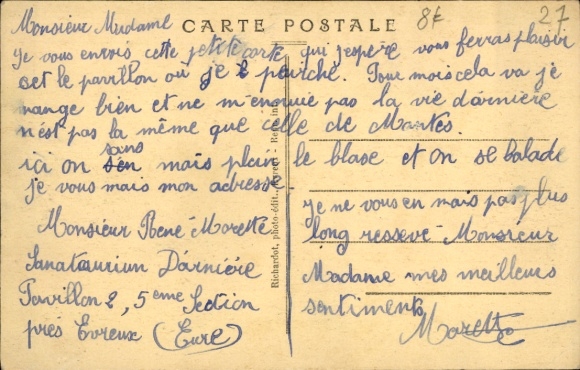 CARTE POSTALE
8f
27
Monsieur Madame
je vous envois cette petite carte qui j'espère vous ferras plaisir
set le pavillon où je perché. Pour mois cela va je
mange bien et ne m'ennuie pas la vie d'arnière
n'est pas la même que celle de Mantes.
ici on sans mais plein le blase et on se balade
je vous mais mon adresse
Monsieur René Morette
Sanataurium D'arnière
Pavillon 2, 5eme Section
près Evreux (Eure)
je ne vous en mais pas plus
long ressevé Monsieur
Madame mes meilleurs
sentiments
Morette
Richardot, photo-édit.